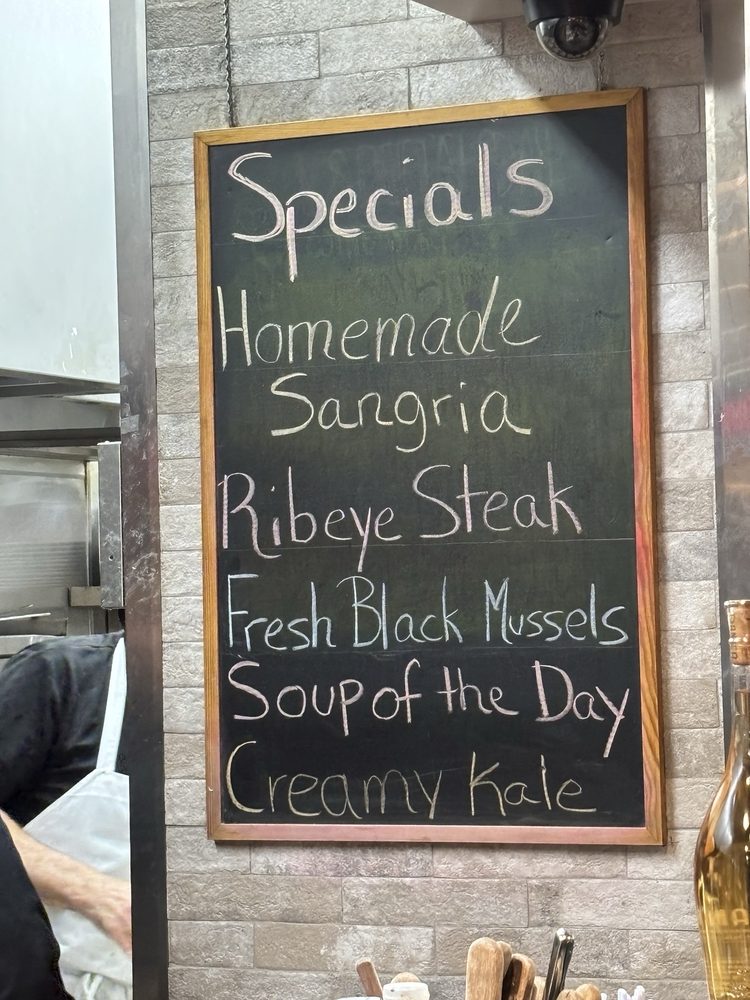 Specials
Homemade
Sangria
Ribeye Steak
Fresh Black Mussels
Soup of the Day
Creamy Kale